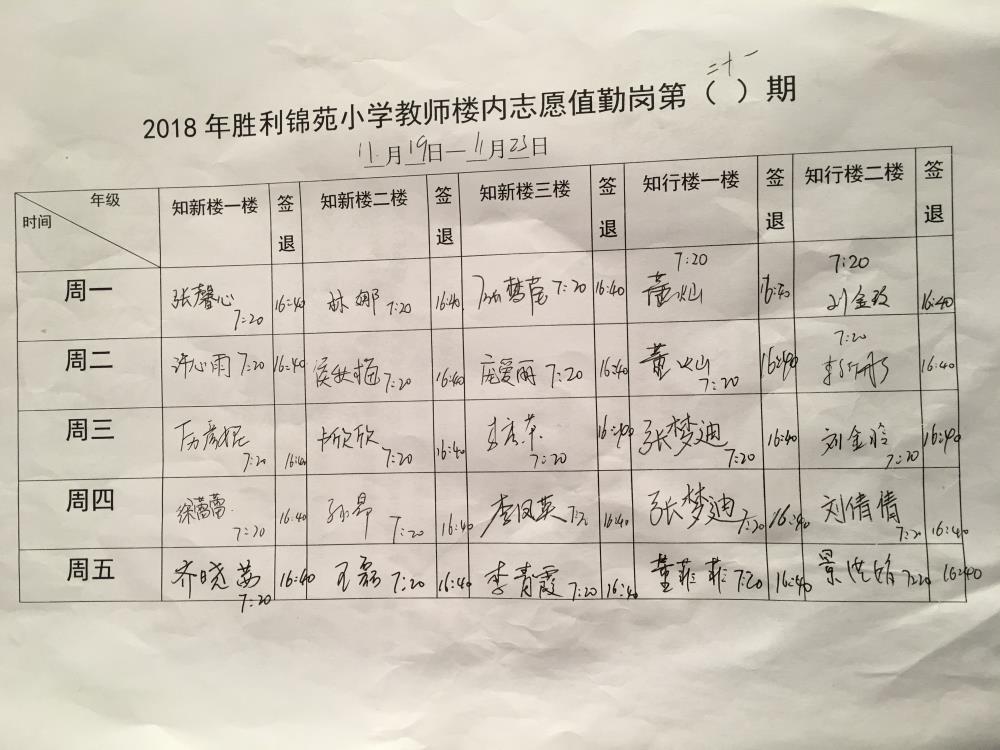 二十一
2018年胜利锦苑小学教师楼内志愿值勤岗第（ ）期
11月19日—11月23日
年级 时间 知新楼一楼 签退 知新楼二楼 签退 知新楼三楼 签退 知行楼一楼 签退 知行楼二楼 签退
周一 张馨心 7:20 16:40 林娜 7:20 16:40 7:20 16:40 董灿 7:20 16:40 7:20 刘金玫 16:40
周二 许心雨 7:20 16:40 侯秋梅 7:20 16:40 庞爱丽 7:20 16:40 董灿 7:20 16:40 7:20 16:40
周三 7:20 16:40 卞欣欣 7:20 16:40 7:20 16:40 张梦迪 7:20 16:40 刘金玲 7:20 16:40
周四 徐蕾蕾 7:20 16:40 孙昂 7:20 16:40 李凤英 7:20 16:40 张梦迪 7:20 16:40 刘倩倩 7:20 16:40
周五 齐晓茜 7:20 16:40 王磊 7:20 16:40 李青霞 7:20 16:40 董菲菲 7:20 16:40 景 7:20 16:40